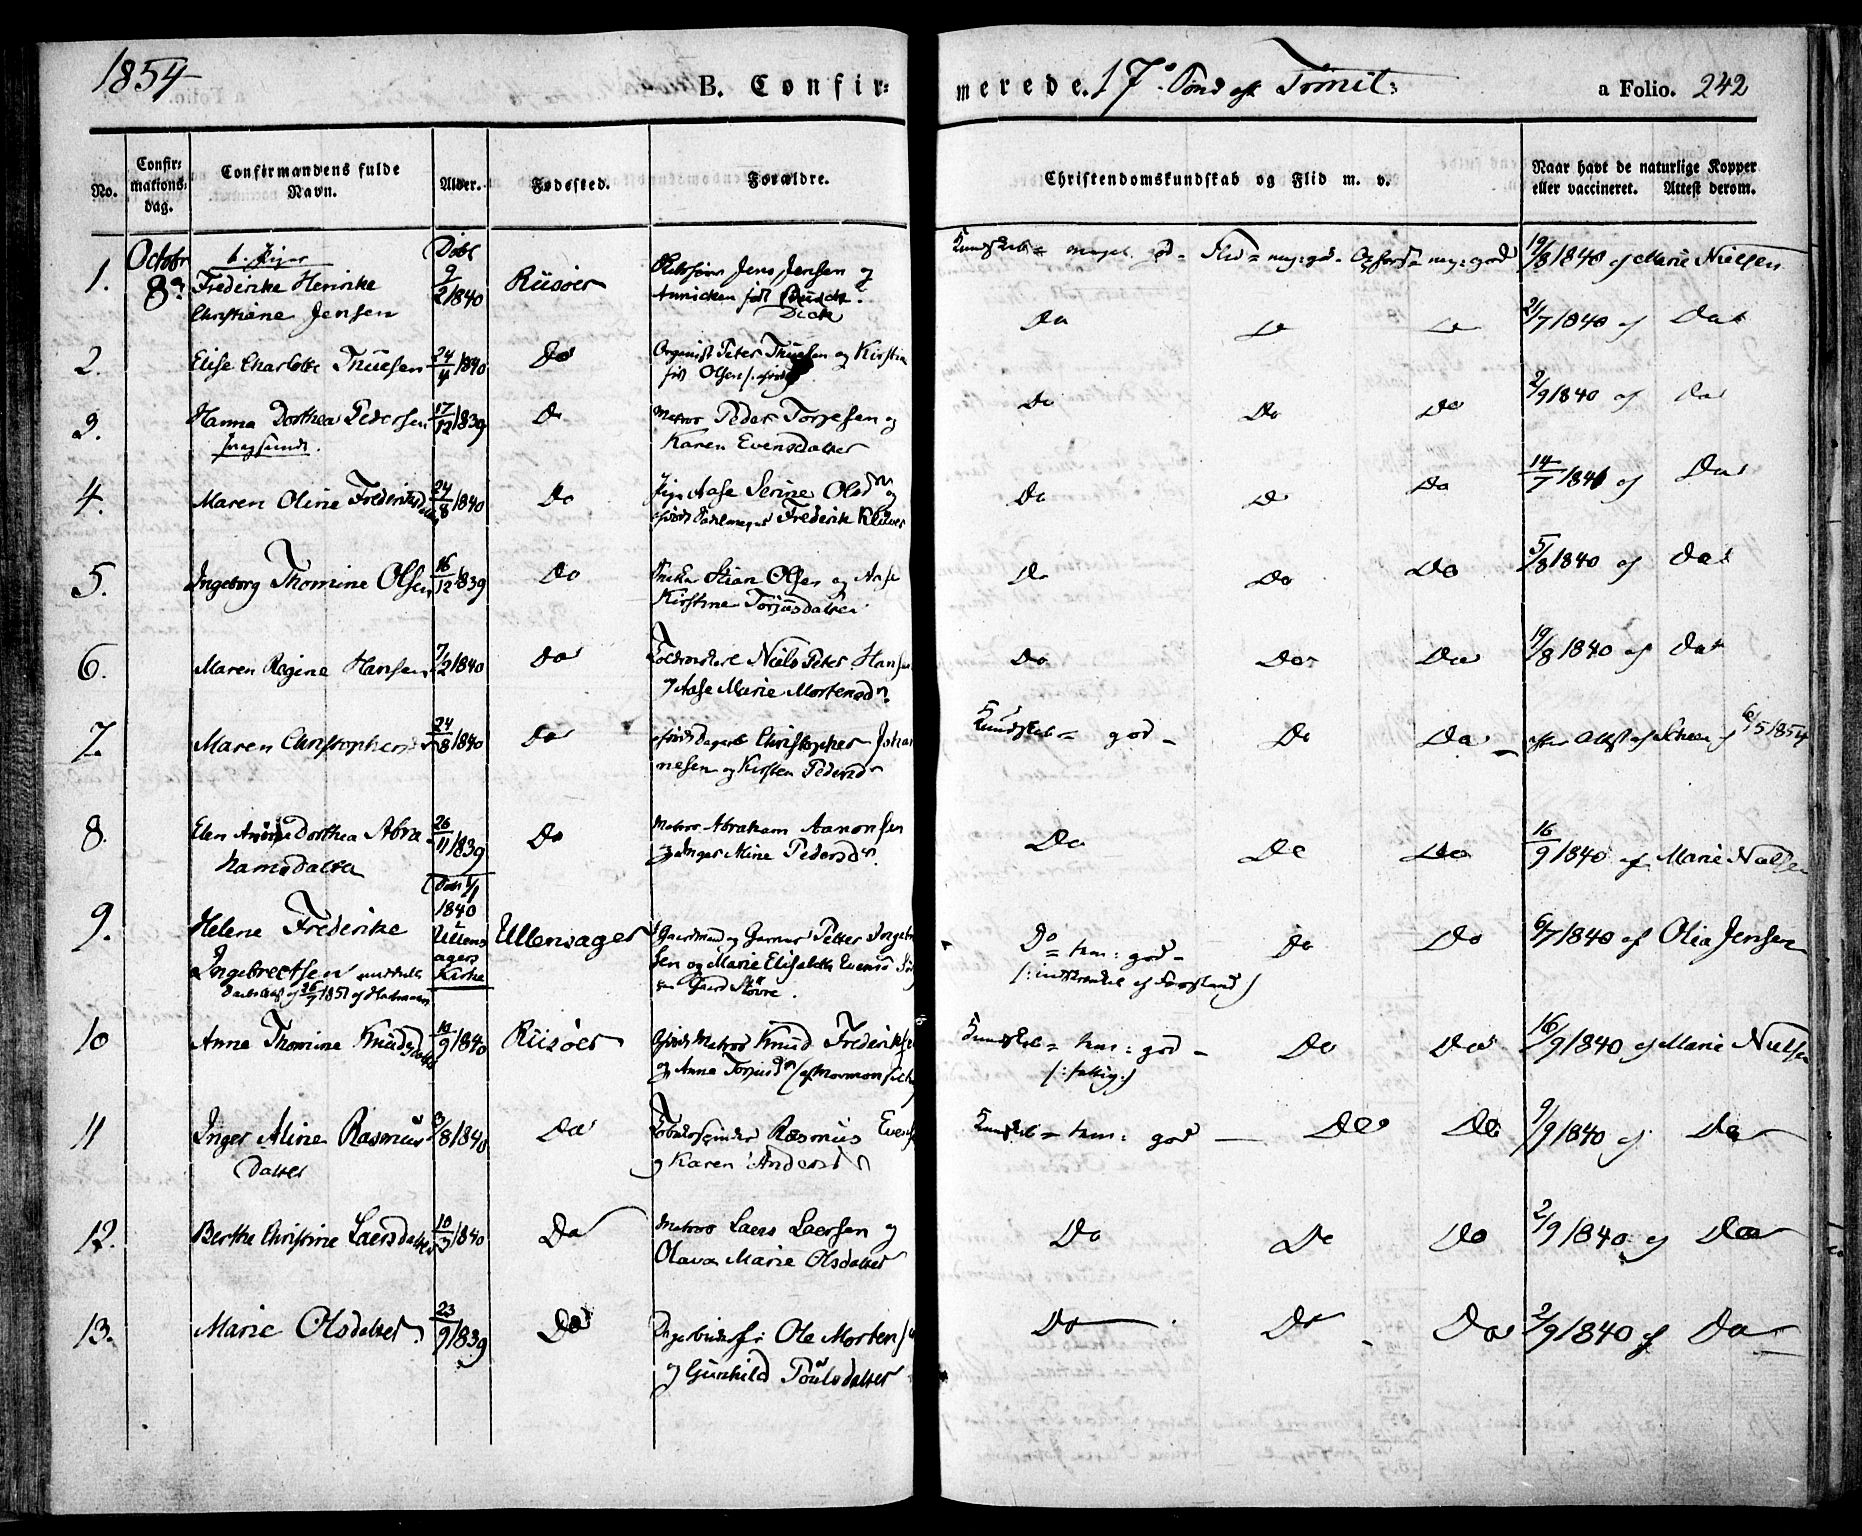 1854
B. Confir=
merede. 17de Sønd eft Trinit:
a Folio. 242
No.
Confir=
mations=
dag.
Confirmandens fulde
Navn.
Alder.
Fødested.
Forældre.
Christendomskundskab og Flid m. v.
Naar havt de naturlige Kopper
eller vaccineret. Attest derom.
Octobr
8de
b. Piger
Døbt
1. Frederikke Henrikke 9/2 1840 Riisøer Jens Jensen og Kundskab = meget god - Flid = meg: god - Opførsel = meg: god 19/8 1840 af Marie Nielsen
Christiane Jensen Annicken født
Dick
2. Elise Charlotte Thuesen 24/4 1840 Do Organist Peter Thuesen og Kirstine Do Do Do 21/7 1840 af Do
født Olsen
3. Hanna Dorthea Pedersen 17/12 1839 Do Matros Peder Torjesen og Do Do Do 2/9 1840 af Do
Karen Evensdatter
4. Maren Oline Frederiksdatter 24/8 1840 Do Pige Aase Serine Olsdr og Do Do Do 14/7 1841 af Do
Frederik Klüver
5. Ingeborg Thomine Olsen 16/12 1839 Do Stian Olsen og Aase Do Do Do 5/8 1840 af Do
Kirstine Torjusdatter
6. Maren Regine Hansen 7/2 1840 Do Niels Peter Hansen Do Do Do 19/8 1840 af Do
og Aase Marie Mortensdr
7. Maren Christophersdr 24/8 1840 Do Christopher Johan Kundskab = god - Do Do - 6/5 1854
nesen og Kirsten Pedersdr
8. Elen Dorthea Abra 26/11 1839 Do Matros Abraham Aanonsen Do Do Do 16/9 1840 af Marie Nielsen
hamsdatter og Inger Aline Pedersdr
9. Helene Frederikke 1840 Ullensager Gaardmand og Petter Ingebret Do = tem: god - Do Do 6/7 1840 af Olea Jensen
Ingebrectsen Ullens
agers
Kirke sen og Marie Elisabeth Evens
Gaard Støvre.
10 Anne Thomine Knudsdatter 10/9 1840 Riisøer Matros Knud Frederiksen Kundskab = tem: god - Do Do 16/9 1840 af Marie Nielsen
og Anne Torjusdr (: fattig :)
11 Inger Aline Rasmus 3/8 1840 Do Rasmus Evensen Kundskab = tem: god - Do Do 9/9 1840 af Do
datter og Karen Andersdr
12. Berthe Christine Laersdatter 10/3 1840 Do Matros Laers Laersen og Do Do Do 2/9 1840 af Do
Olava Marie Olsdatter
13. Marie Olsdatter 23/9 1839 Do Ole Mortensen Do Do Do 2/9 1840 af Do
og Gunhild Poulsdatter